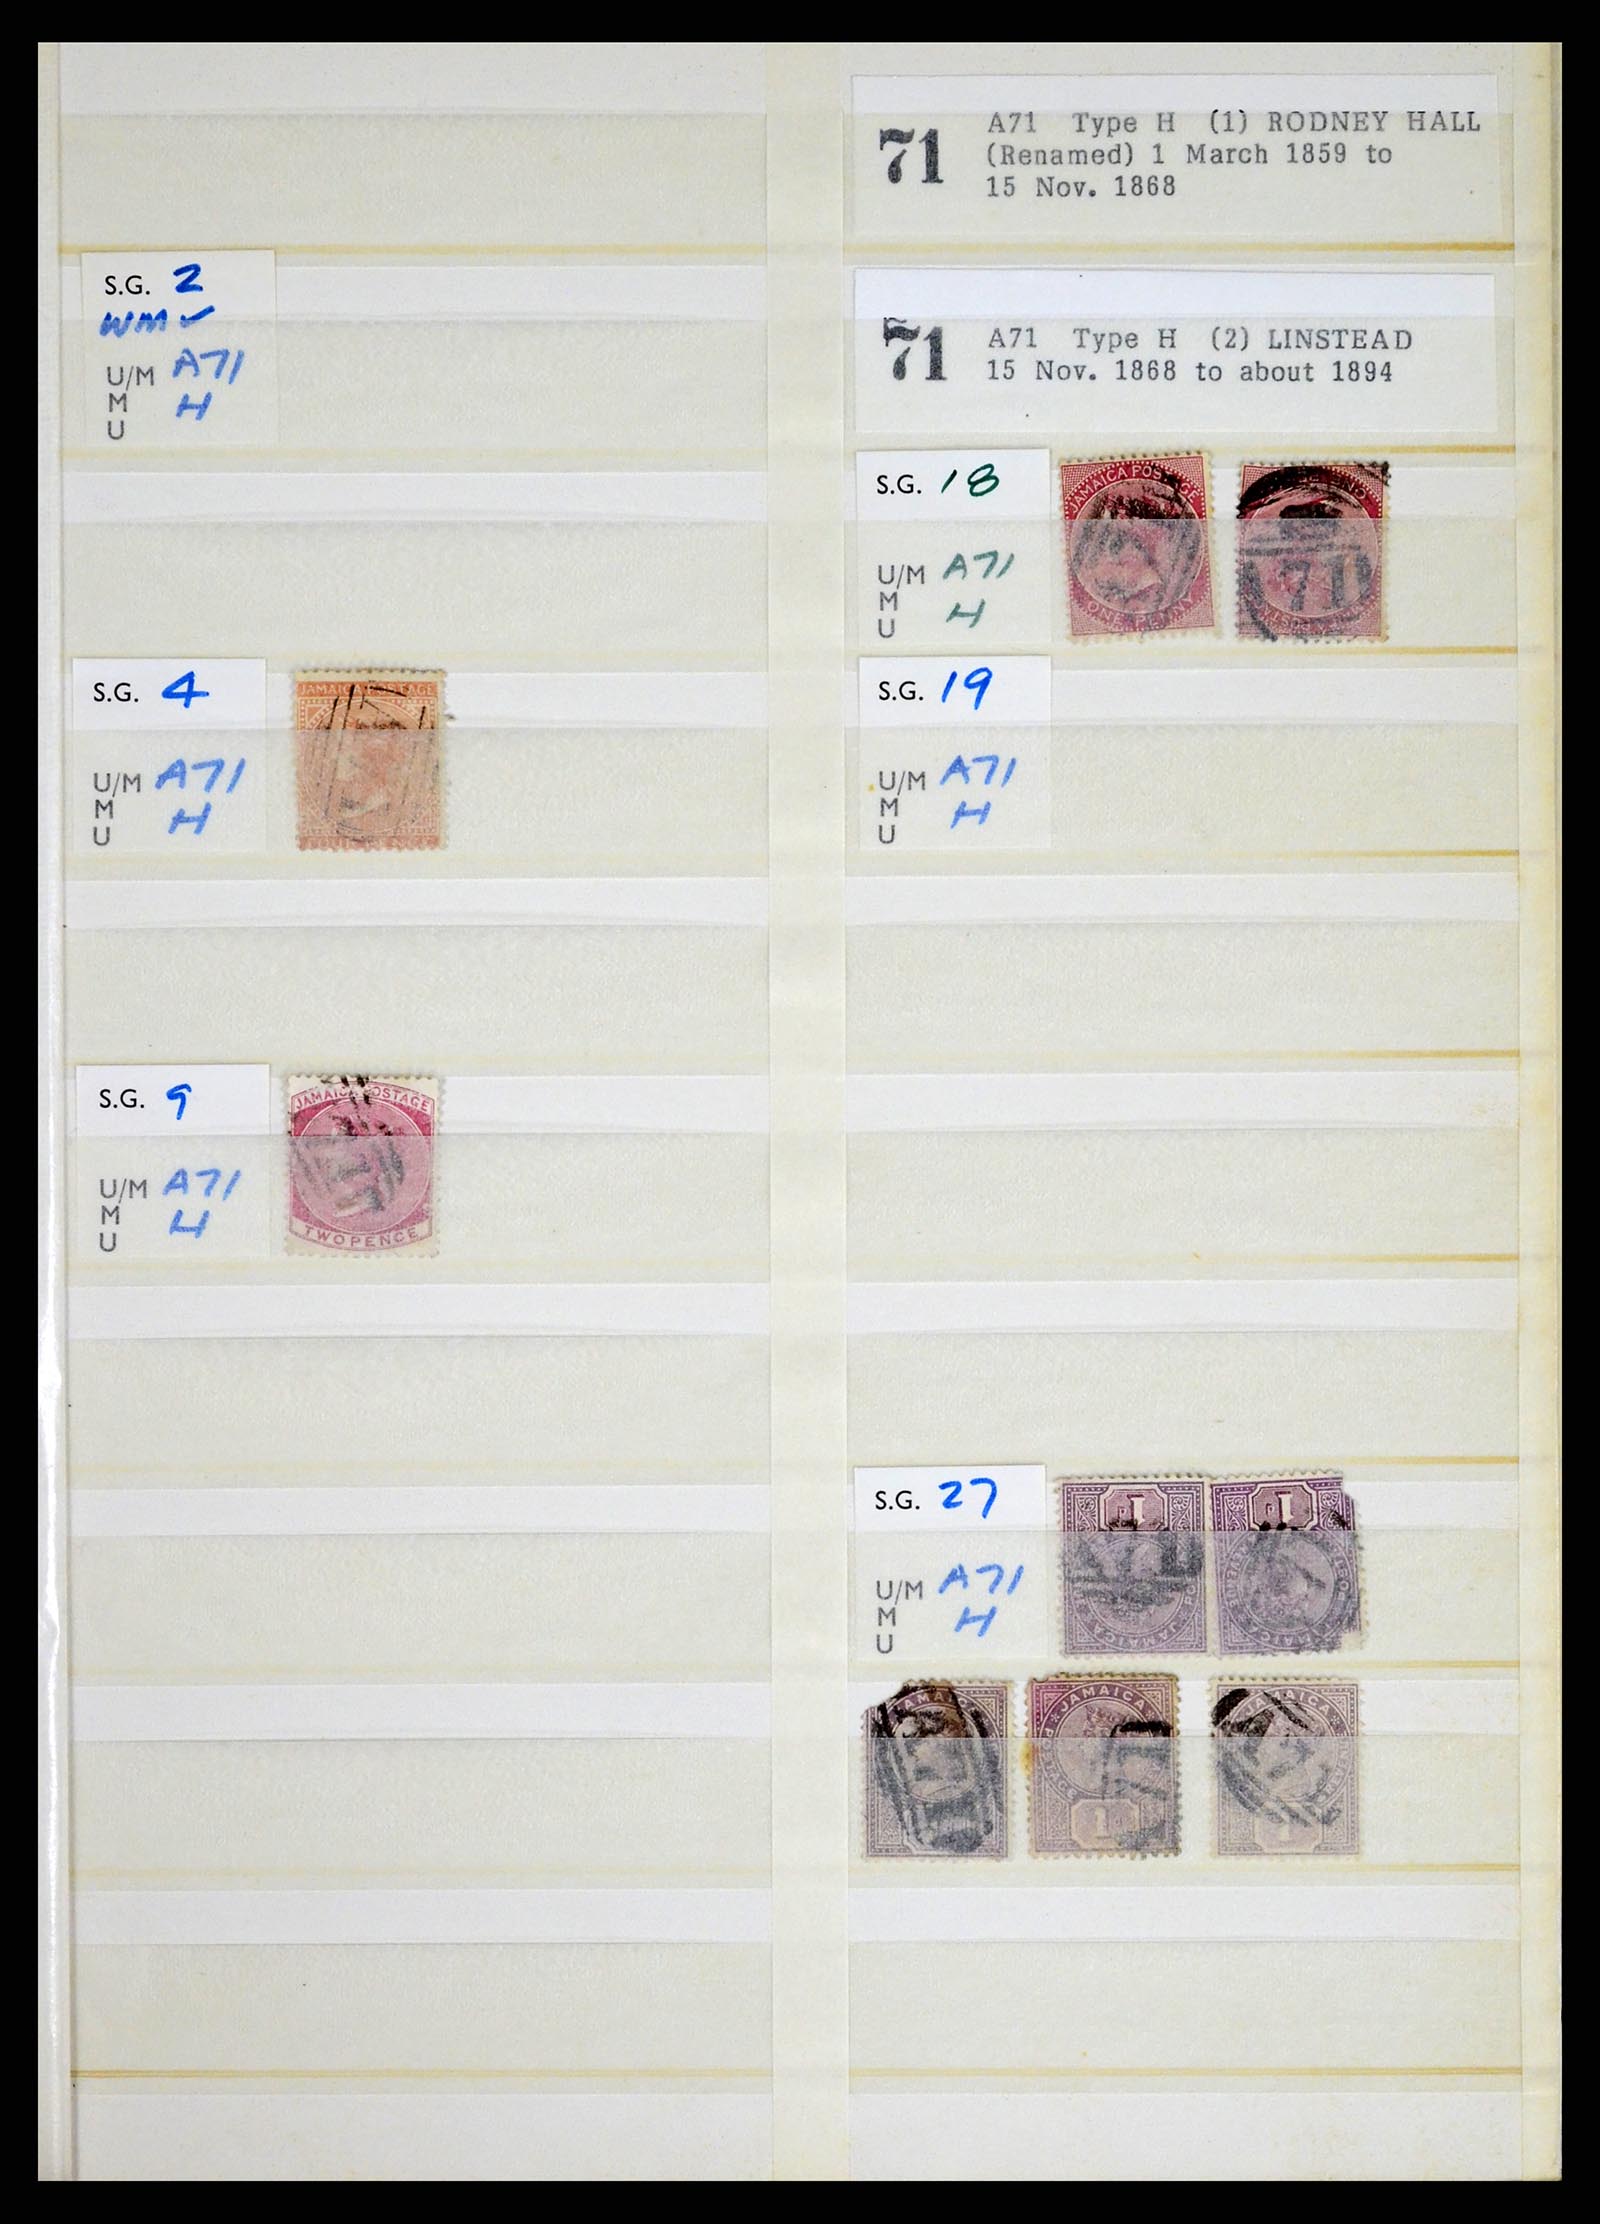 71
A71 Type H (1) RODNEY HALL
(Renamed) 1 March 1859 to
15 Nov. 1868
S.G. 2
WM ✓
U/M A71
M H
U
71
A71 Type H (2) LINSTEAD
15 Nov. 1868 to about 1894
S.G. 18
U/M A71
M H
U
JAMAICA POSTAGE
ONE PENNY
A71
S.G. 4
U/M A71
M H
U
JAMAICA POSTAGE
FOUR PENCE
S.G. 19
U/M A71
M H
U
S.G. 9
U/M A71
M H
U
JAMAICA POSTAGE
TWO PENCE
S.G. 27
U/M A71
M H
U
1D
JAMAICA
A71
1D
JAMAICA
JAMAICA
JAMAICA
1D
JAMAICA